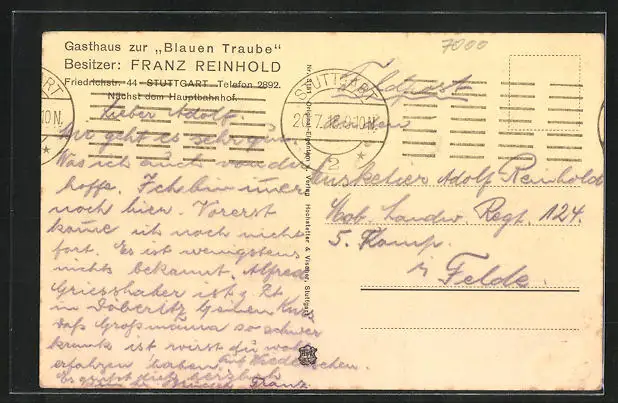 Gasthaus zur „Blauen Traube"
Besitzer: FRANZ REINHOLD
Friedrichstr. 44 - STUTTGART - Telefon 2892.
Nächst dem Hauptbahnhof.
7000
STUTTGART
20.7.18.9-10N.
2
Feldpost
Lieber Adolf.
Mir geht es sehr gut
Was ich auch von dir
hoffe. Ich bin imer
noch hier. Vorerst
kome ich noch nicht
fort. Es ist wenigstens
nichts bekannt. Alfred
Grieshaber ist z. Zt
in Döberitz
Daß Großmama so schwer
krank ist wirst du wohl
erfahren haben.
Es grüßt dich herzlich
Franz
Musketier Adolf Reinhold
Mob. Landw. Regt. 124.
5. Komp.
i. Felde.
Verlag Hochstetter & Vischer, Stuttgart